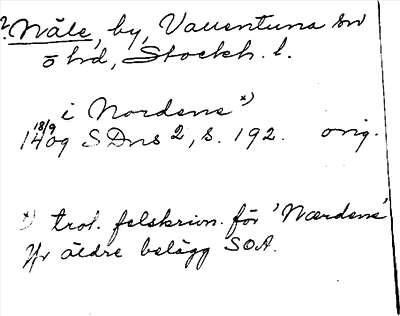 ? Nåle, by, Vallentuna sn
o hd, Stockh. l.
i Nordens x)
18/9
1409 SDns 2, s. 192. orig.
x) trol. felskrivn. för 'Nærdens'
Jfr äldre belägg SOA.